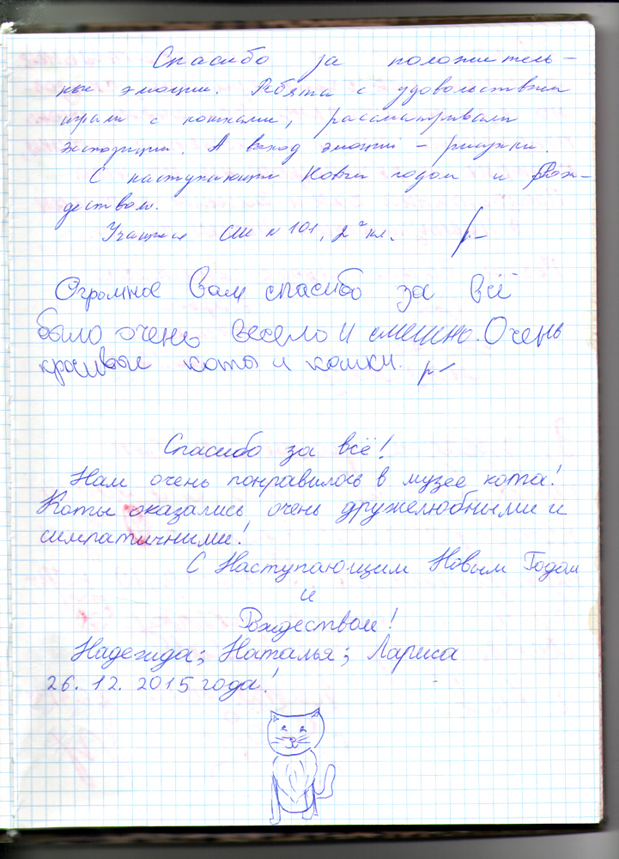 Спасибо за положитель-
ные эмоции. Ребята с удовольствием
играли с кошками, рассматривали
экспозиции. А выход эмоций – рисунки.
С наступающим Новым годом и Рож-
деством.
Учащиеся СШ N 101, 2 кл.
Огромное Вам спасибо за всё
было очень весело и смешно. Очень
красивые коты и кошки.
Спасибо за всё!
Нам очень понравилось в музее кота!
Коты оказались очень дружелюбными и
симпатичными!
С Наступающим Новым Годом
и
Рождеством!
Надежида; Наталья; Лариса
26. 12. 2015 года!